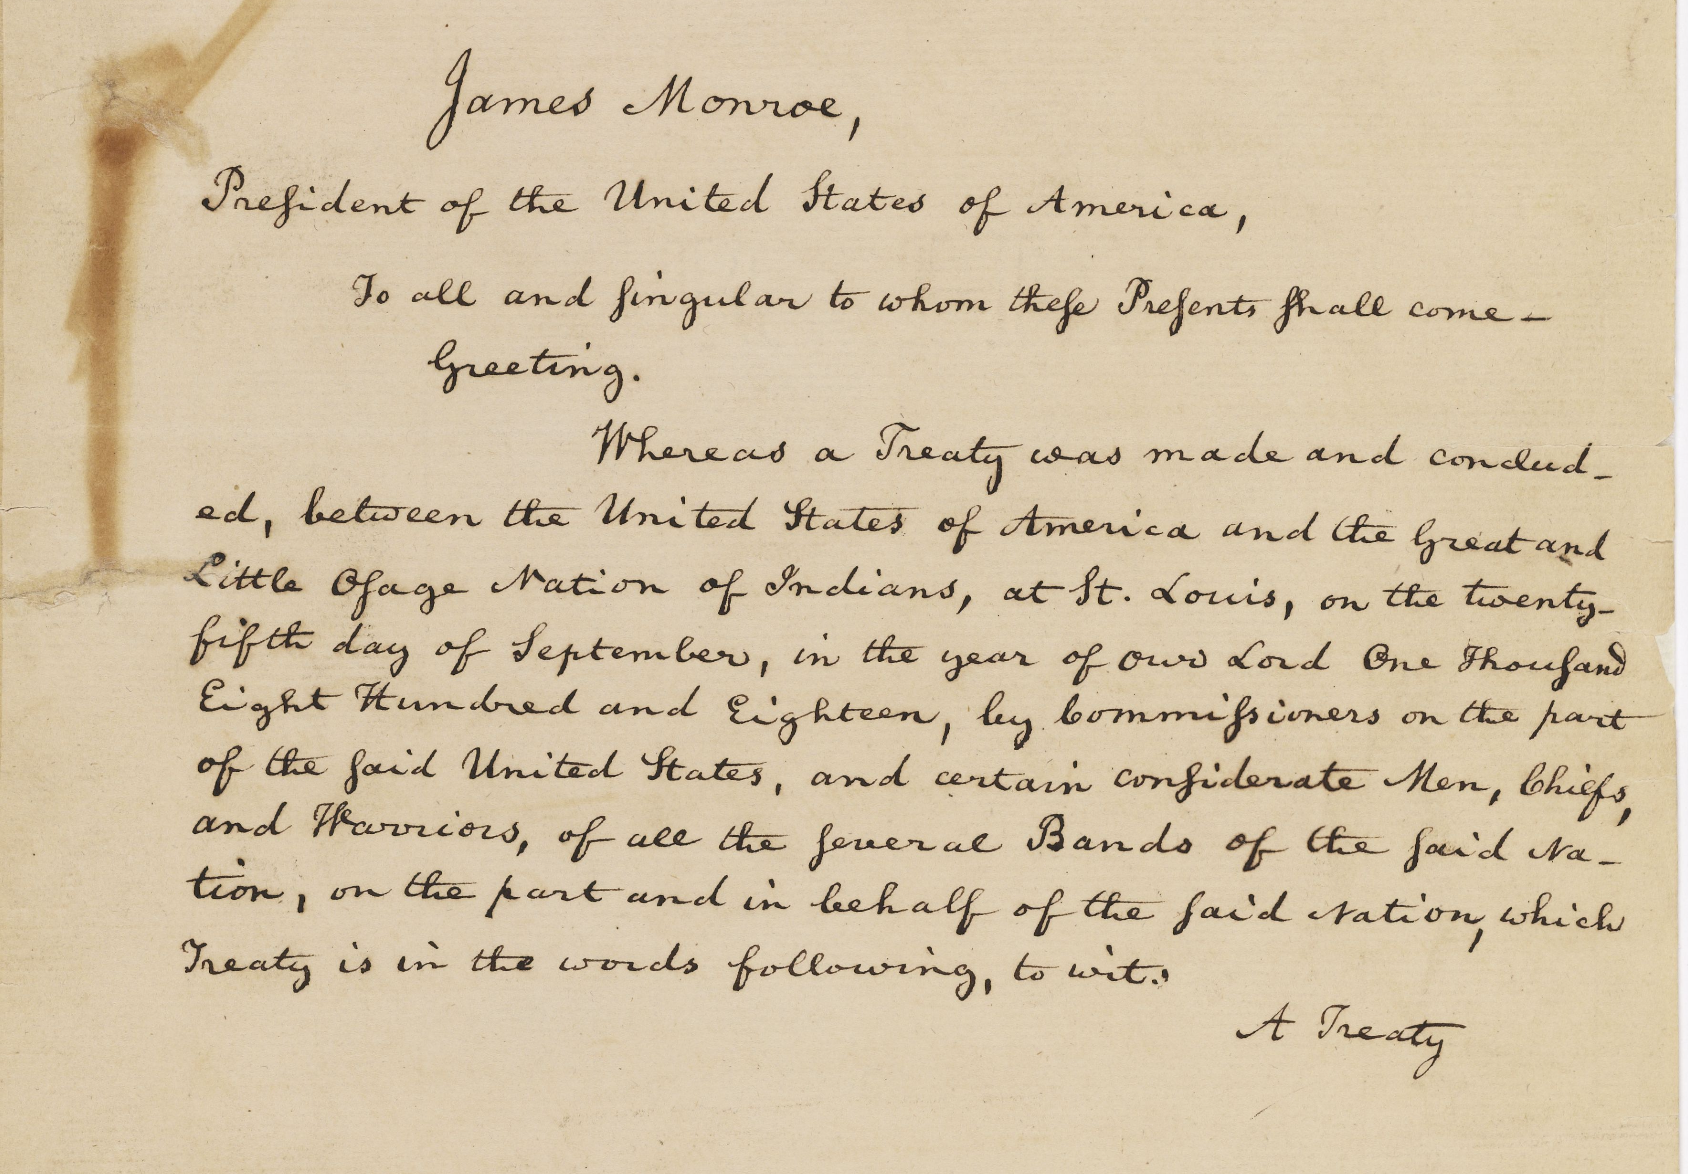 James Monroe,
President of the United States of America,
To all and singular to whom these Presents shall come –
Greeting.
Whereas a Treaty was made and conclud-
ed, between the United States of America and the Great and
Little Osage Nation of Indians, at St. Louis, on the twenty-
fifth day of September, in the year of our Lord One Thousand
Eight Hundred and Eighteen, by Commissioners on the part
of the said United States, and certain considerate Men, Chiefs,
and Warriors, of all the several Bands of the said Na-
tion, on the part and in behalf of the said Nation, which
Treaty is in the words following, to wit:
A Treaty